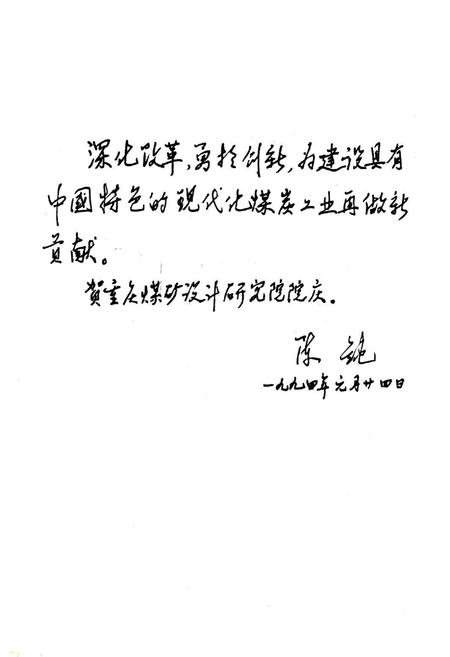 深化改革,勇于创新,为建设具有
中國特色的现代化煤炭工业再做新
贡献。
贺重庆煤矿设计研究院院庆。
陈钝
一九九四年元月廿四日